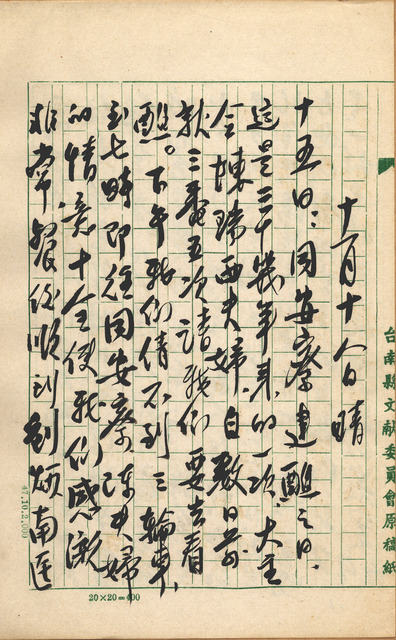 台南縣文献委員會原稿紙
十一月十八日晴
十五日：同安寮建醮之日。
這是三十幾年来的一次、大主
会陳瑞西夫婦、自数日前
就三番五次請我们要去看
醮。下午我们倩不到三輪車、
到七時即往同安寮、陳夫婦
的情意十全使我们感激
非常、餐後順到劉煩南医
47.10.2,000
20×20=400